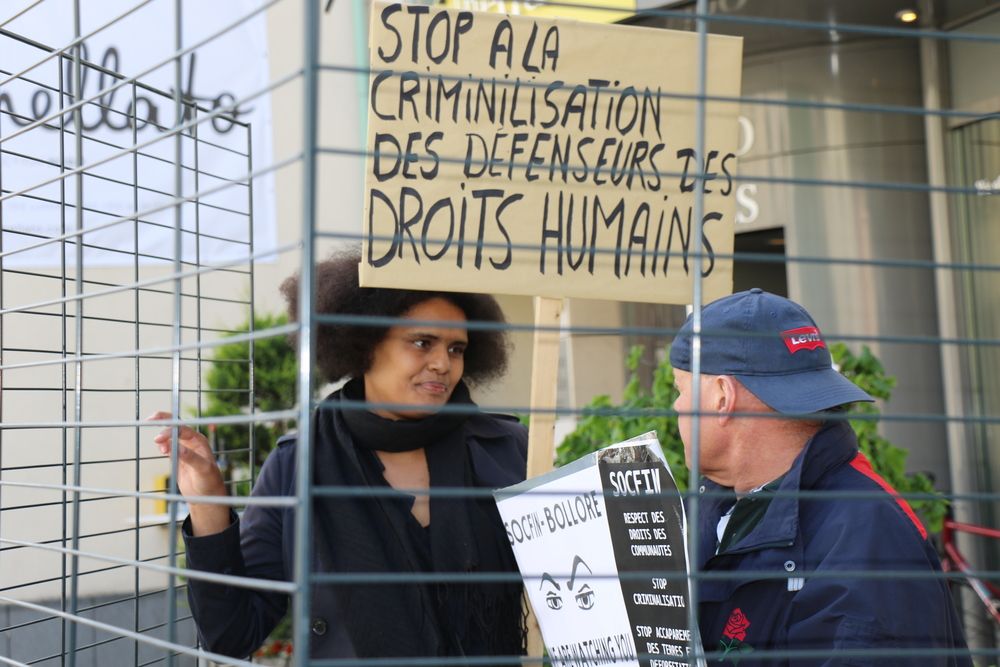 STOP À LA
CRIMINILISATION
DES DÉFENSEURS DES
DROITS HUMAINS
LEVI'S
SOCFIN-BOLLORE
WATCHING YOU
SOCFIN
RESPECT DES
DROITS DES
COMMUNAUTES
STOP
CRIMINALISATIO
STOP ACCAPAREME
DES TERRES E